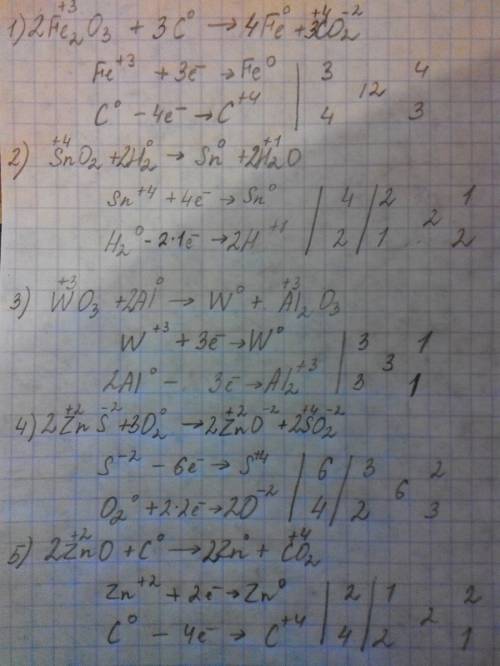 1) 2Fe₂⁺³O₃ + 3C⁰ → 4Fe⁰ + 3C⁺⁴O₂⁻²
Fe⁺³ + 3e̅ → Fe⁰ | 3 4
12
C⁰ - 4e̅ → C⁺⁴ | 4 3
2) Sn⁺⁴O₂ + 2H₂⁰ → Sn⁰ + 2H₂⁺¹O
Sn⁺⁴ + 4e̅ → Sn⁰ | 4 | 2 1
2
H₂⁰ - 2·1e̅ → 2H⁺¹ | 2 | 1 2
3) W⁺³O₃ + 2Al⁰ → W⁰ + Al₂⁺³O₃
W⁺³ + 3e̅ → W⁰ | 3 1
3
2Al⁰ - 3e̅ → Al₂⁺³ | 3 1
4) 2Zn⁺²S⁻² + 3O₂⁰ → 2Zn⁺²O⁻² + 2S⁺⁴O₂⁻²
S⁻² - 6e̅ → S⁺⁴ | 6 | 3 2
6
O₂⁰ + 2·2e̅ → 2O⁻² | 4 | 2 3
5) 2Zn⁺²O + C⁰ → 2Zn⁰ + C⁺⁴O₂
Zn⁺² + 2e̅ → Zn⁰ | 2 | 1 2
2
C⁰ - 4e̅ → C⁺⁴ | 4 | 2 1